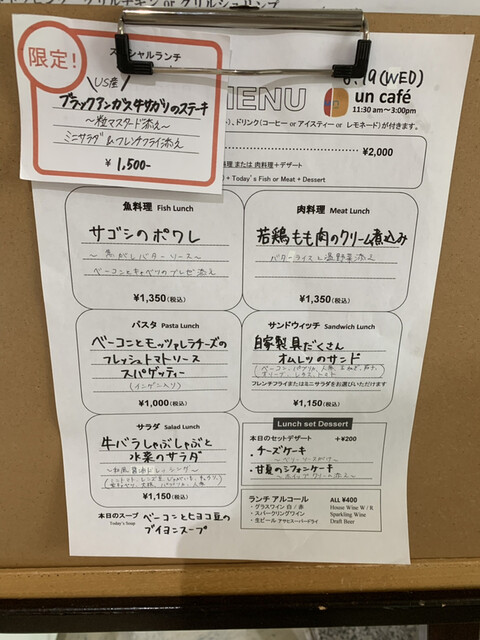 限定!
スペシャルランチ
US産
ブラックアンガス牛サガリのステーキ
〜粒マスタード添え〜
ミニサラダ&フレンチフライ添え
¥1,500-
MENU
6.19(WED)
un café
11:30 am〜3:00pm
ドリンク(コーヒー or アイスティー or レモネード)が付きます。
¥2,000
料理 または 肉料理+デザート
+ Today's Fish or Meat + Dessert
魚料理 Fish Lunch
サゴシのポワレ
〜焦がしバターソース〜
ベーコンとキャベツのブレゼ添え
¥1,350(税込)
肉料理 Meat Lunch
若鶏もも肉のクリーム煮込み
バターライスと温野菜添え
¥1,350(税込)
パスタ Pasta Lunch
ベーコンとモッツァレラチーズの
フレッシュトマトソース
スパゲッティー
(インゲン入り)
¥1,000(税込)
サンドウィッチ Sandwich Lunch
自家製具だくさん
オムレツのサンド
フレンチフライまたはミニサラダをお選びいただけます
¥1,150(税込)
サラダ Salad Lunch
牛バラしゃぶしゃぶと
水菜のサラダ
〜和風醤油ドレッシング〜
¥1,150(税込)
Lunch set Dessert
本日のセットデザート +¥200
・チーズケーキ
〜ベリーソースがけ〜
・甘夏のシフォンケーキ
〜ホイップクリーム添え〜
本日のスープ
Today's Soup
ベーコンとヒヨコ豆の
ブイヨンスープ
ランチ アルコール ALL ¥400
・グラスワイン 白 / 赤 House Wine W / R
・スパークリングワイン Sparkling Wine
・生ビール アサヒスーパードライ Draft Beer